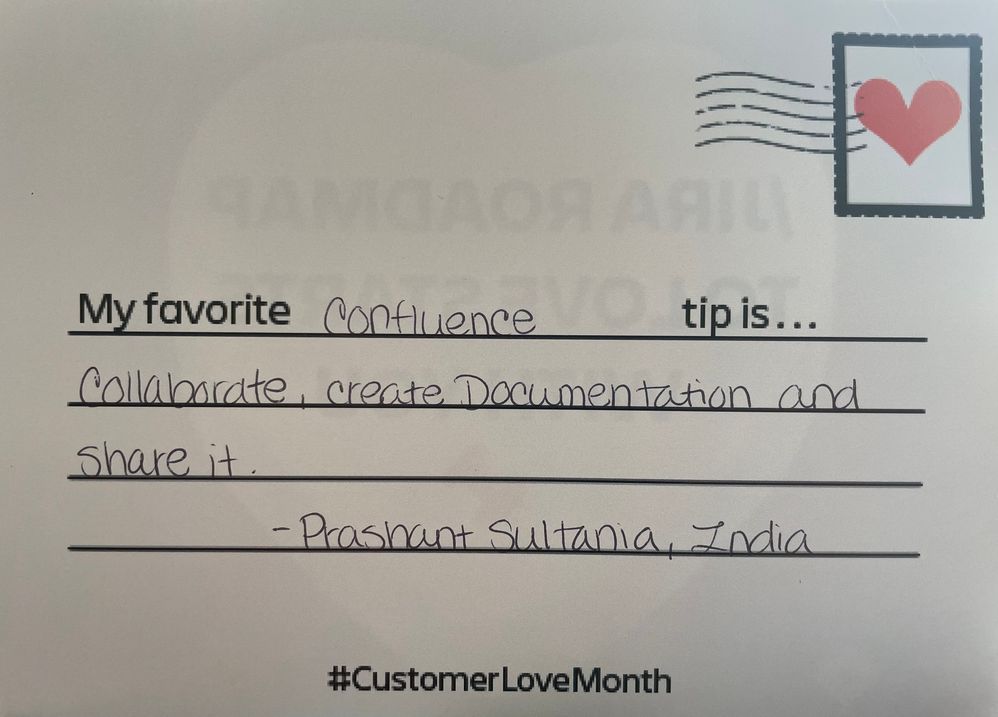 My favorite Confluence tip is...
Collaborate, create Documentation and
share it.
- Prashant Sultania, India
#CustomerLoveMonth
/JIRA ROADMAP
TO LOVE STARTS